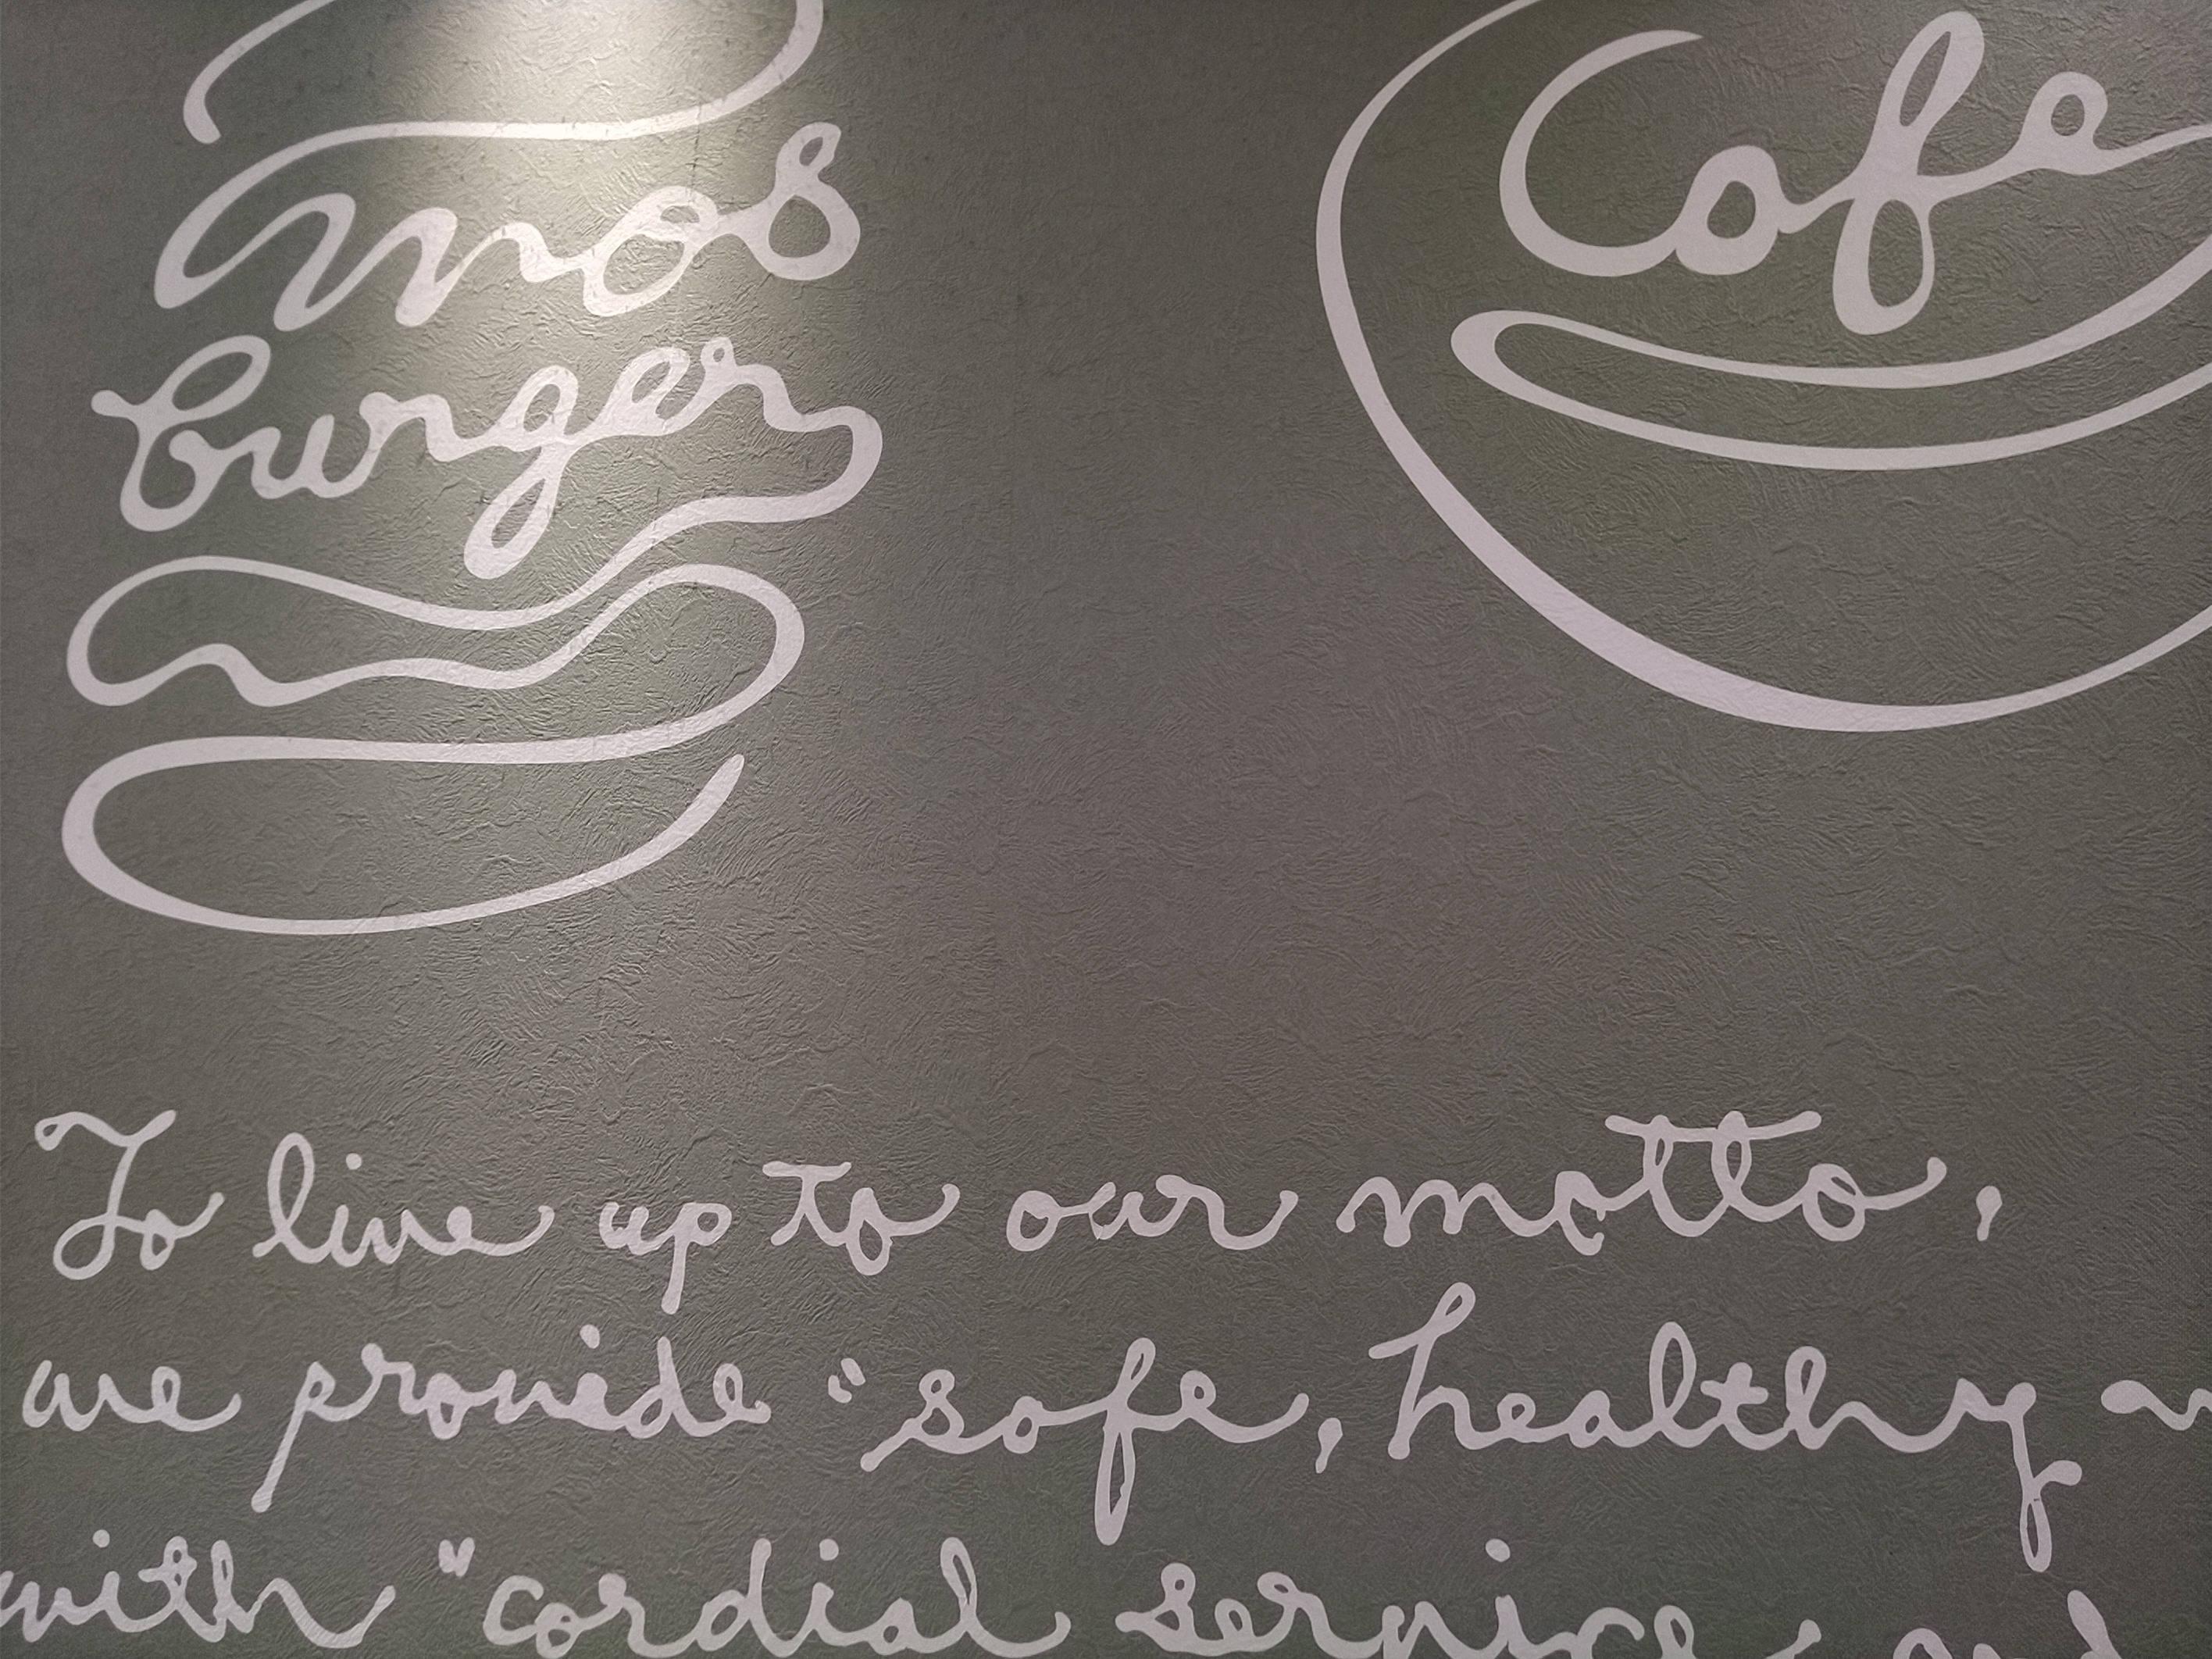 mos
burger
Cafe
To live up to our motto,
we provide "safe, healthy
with "cordial service, and